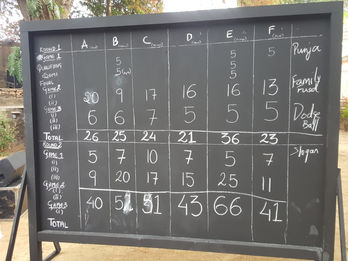 A B C D E F
ROUND 1 5 5 5 Punja
GAME 1 5
QUALIFYING 5 5
SEMI 5 5
FINAL Family
GAME 2
(i) 20 9 17 16 16 13
(ii)
GAME 3 6 6 7 5 5 5 Dodge
(i) Ball
(ii)
TOTAL 26 25 24 21 36 23
ROUND 2 Slogan
GAME 1 5 7 10 7 5 7
(i)
(ii)
(iii) 9 20 17 15 25 11
GAME 2
(i)
GAME 3 40 52 51 43 66 41
(i)
TOTAL